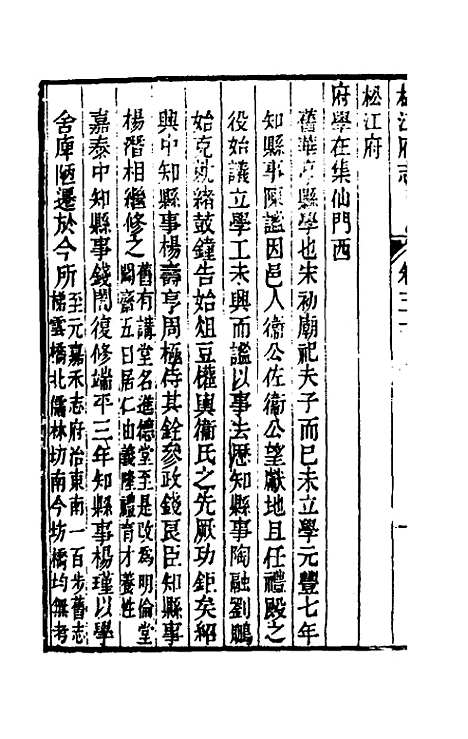 松江府志
卷三十
松江府
府學在集仙門西
舊華亭縣學也宋初廟祀夫子而已未立學元豐七年
知縣事陳謐因邑人衞公佐衞公望獻地且任禮殿之
役始議立學工未興而謐以事去歷知縣事陶融劉鵬
始克就緒鼓鐘告始俎豆權輿衞氏之先厥功鉅矣紹
興中知縣事楊壽亨周極侍其銓參政錢良臣知縣事
楊潛相繼修之舊有講堂名進德堂至是改爲明倫堂
闢齋五曰居仁由義隆禮育才養性
嘉泰中知縣事錢閎復修端平三年知縣事楊瑾以學
舍庫陋遷於今所至元嘉禾志府治東南一百步舊志
梯雲橋北儒林坊南今坊橋均無考